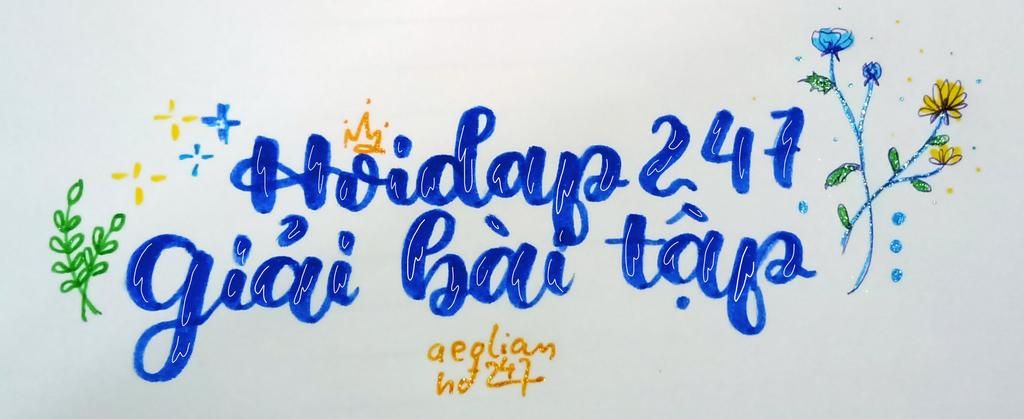 Hoidap 247
giải bài tập
aeglian
hd 247